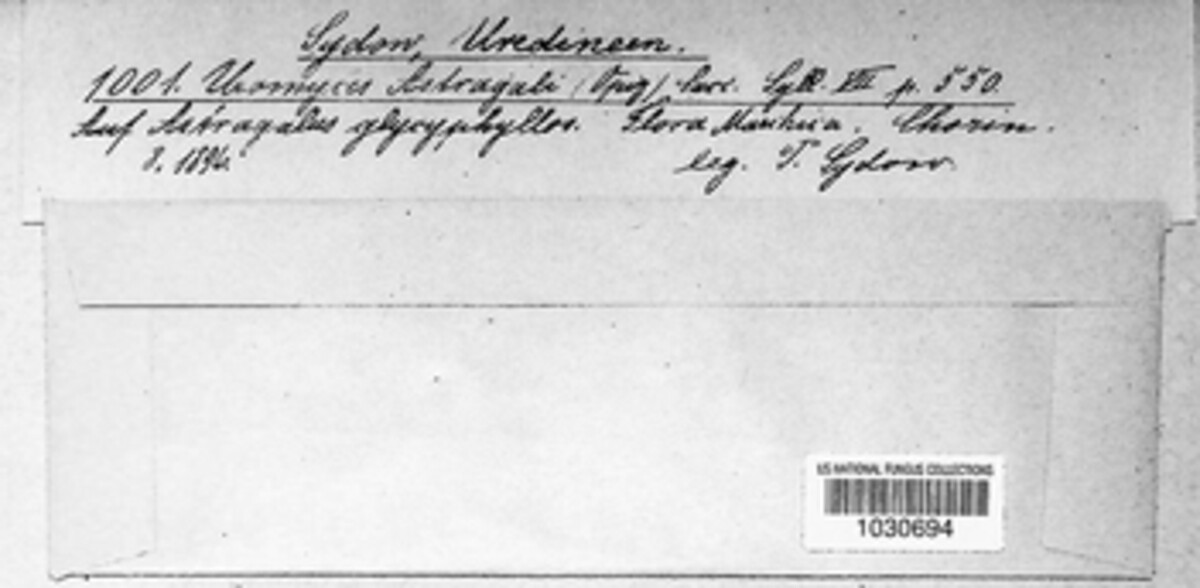 Sydow, Uredineen.
1001. Uromyces Astragali (Opiz) Sacc. Syll. VII p. 550.
Auf Astragalus glycyphyllos. Flora Marchica. Chorin.
8. 1894. leg. P. Sydow.
US NATIONAL FUNGUS COLLECTIONS
1030694